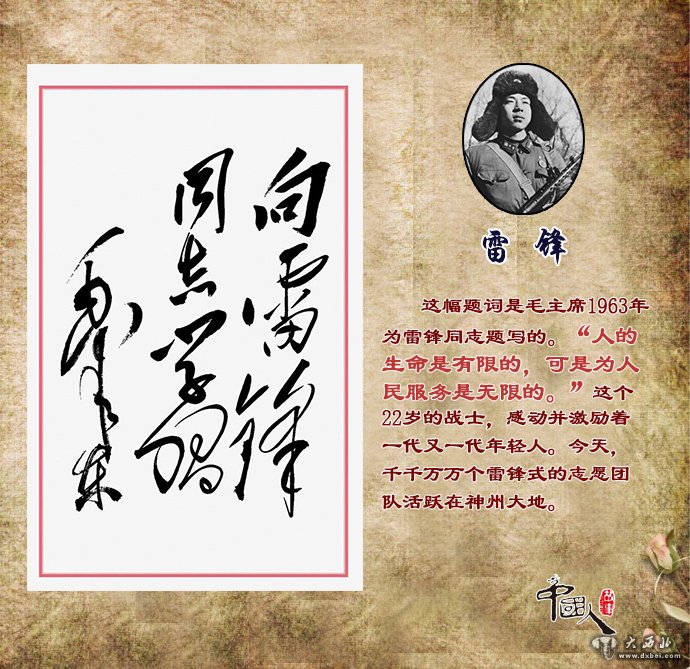 向雷锋
同志学习
毛泽东
雷 锋
这幅题词是毛主席1963年
为雷锋同志题写的。“人的
生命是有限的，可是为人
民服务是无限的。”这个
22岁的战士，感动并激励着
一代又一代年轻人。今天，
千千万万个雷锋式的志愿团
队活跃在神州大地。
中國人
故事
大西北
www.dxbei.com